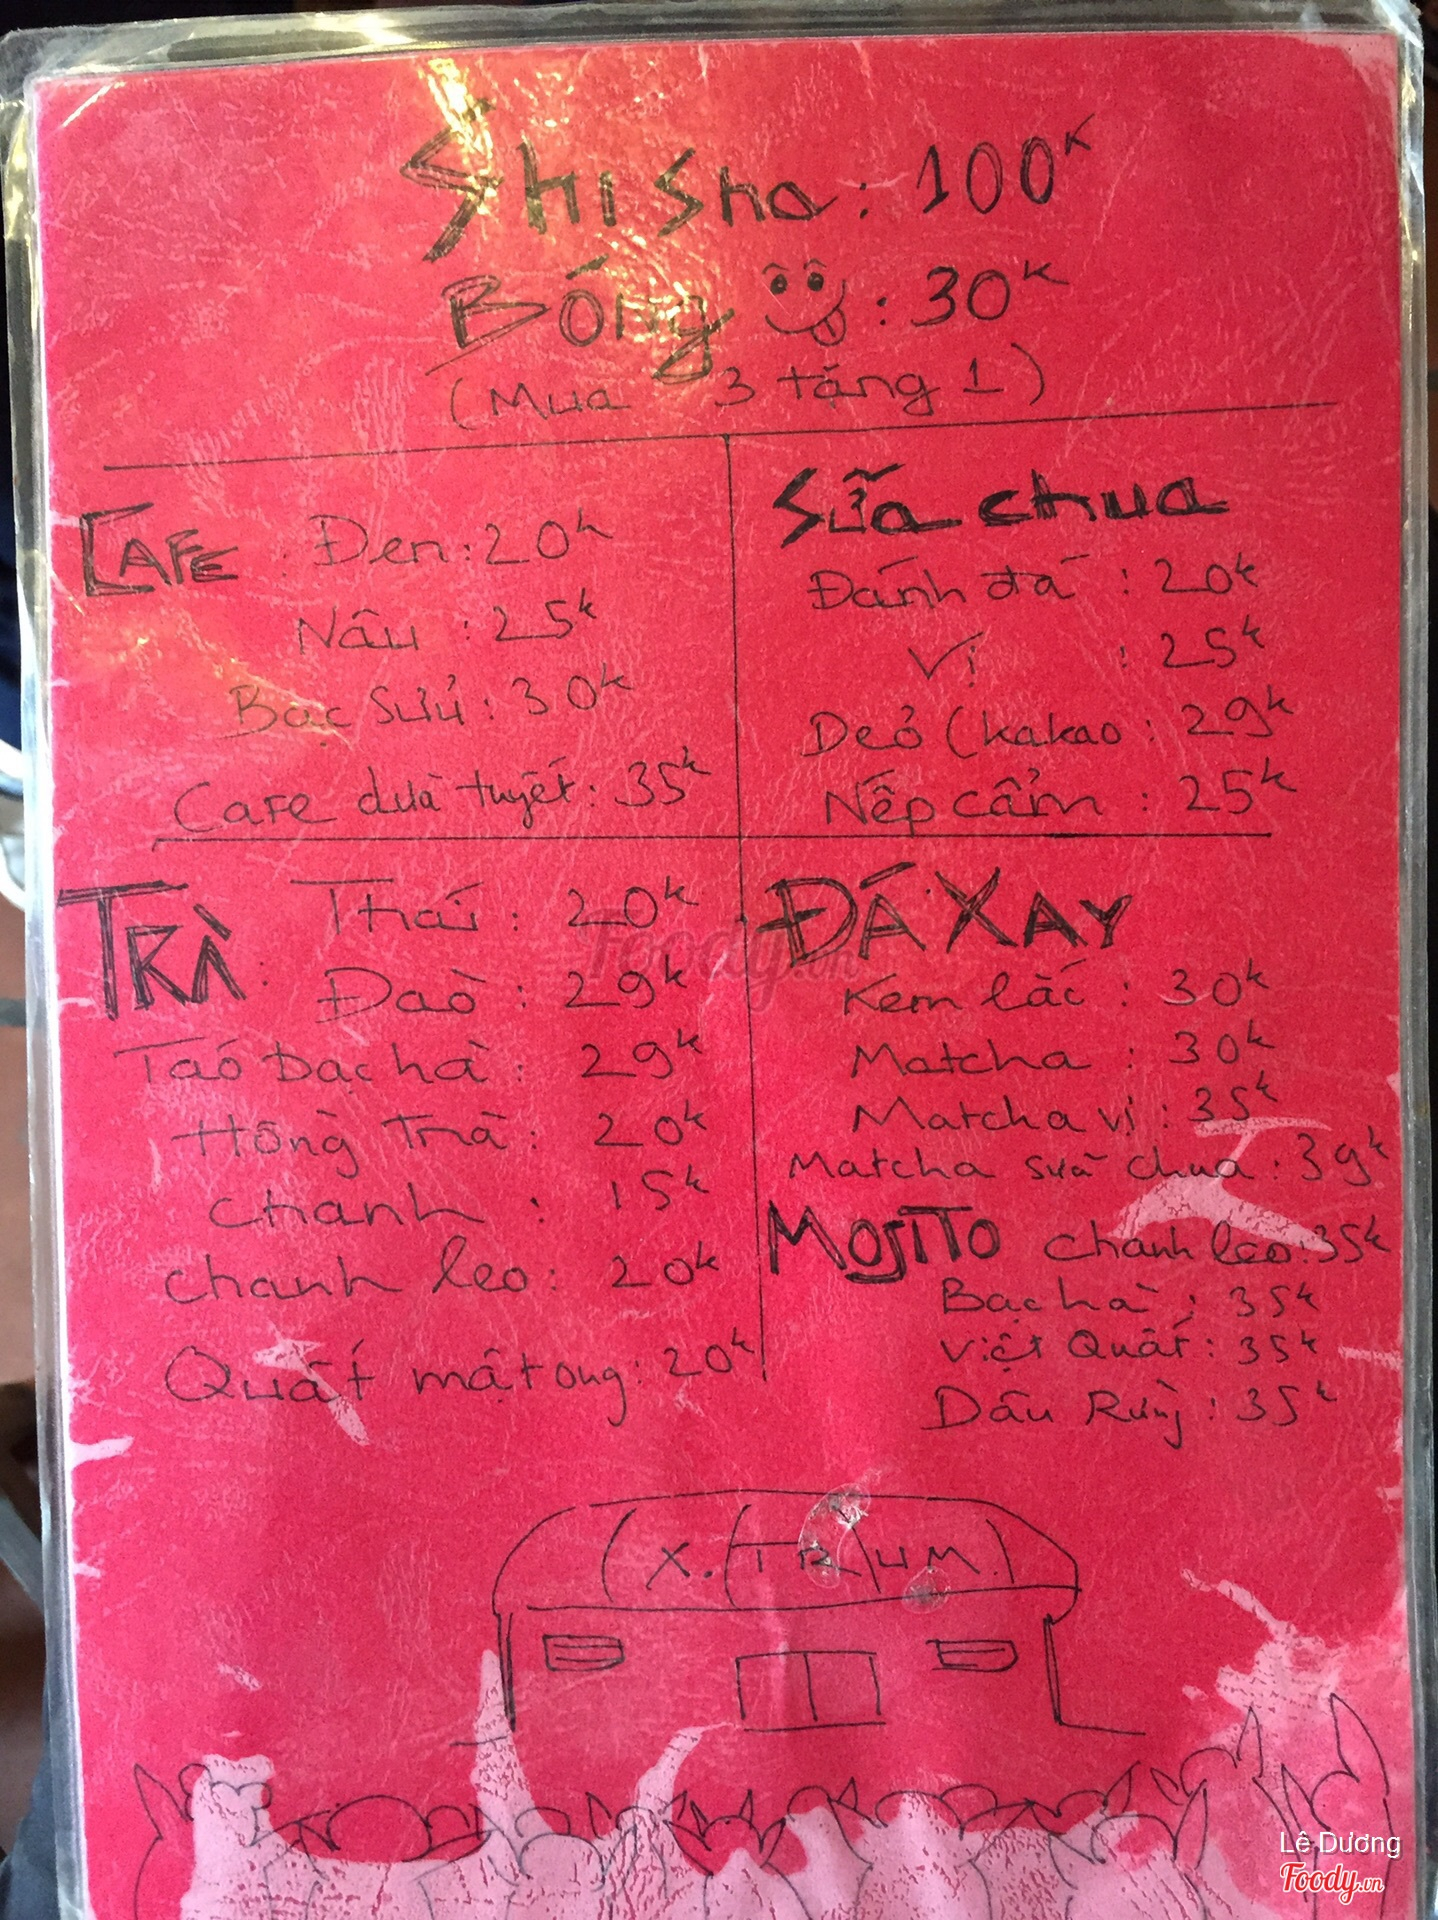 Shisha: 100k
Bóng : 30k
(Mua 3 tặng 1)
CAFE : Đen: 20k
Nâu : 25k
Bạc sửu : 30k
Cafe dừa tuyết: 35k
Sữa chua
Đánh đá : 20k
Vị : 25k
Dẻo (kakao : 29k
Nếp cẩm : 25k
TRÀ: Thái : 20k
Đào : 29k
Táo bạc hà : 29k
Hồng Trà : 20k
Chanh : 15k
chanh leo: 20k
Quất mật ong: 20k
ĐÁ XAY
Kem lắc : 30k
Matcha : 30k
Matcha vị : 35k
Matcha sữa chua : 39k
MOJITO chanh leo: 35k
Bạc hà : 35k
Việt Quất : 35k
Dâu Rừng : 35k
X.TRIUM
Foody.vn
Lê Dương
Foody.vn